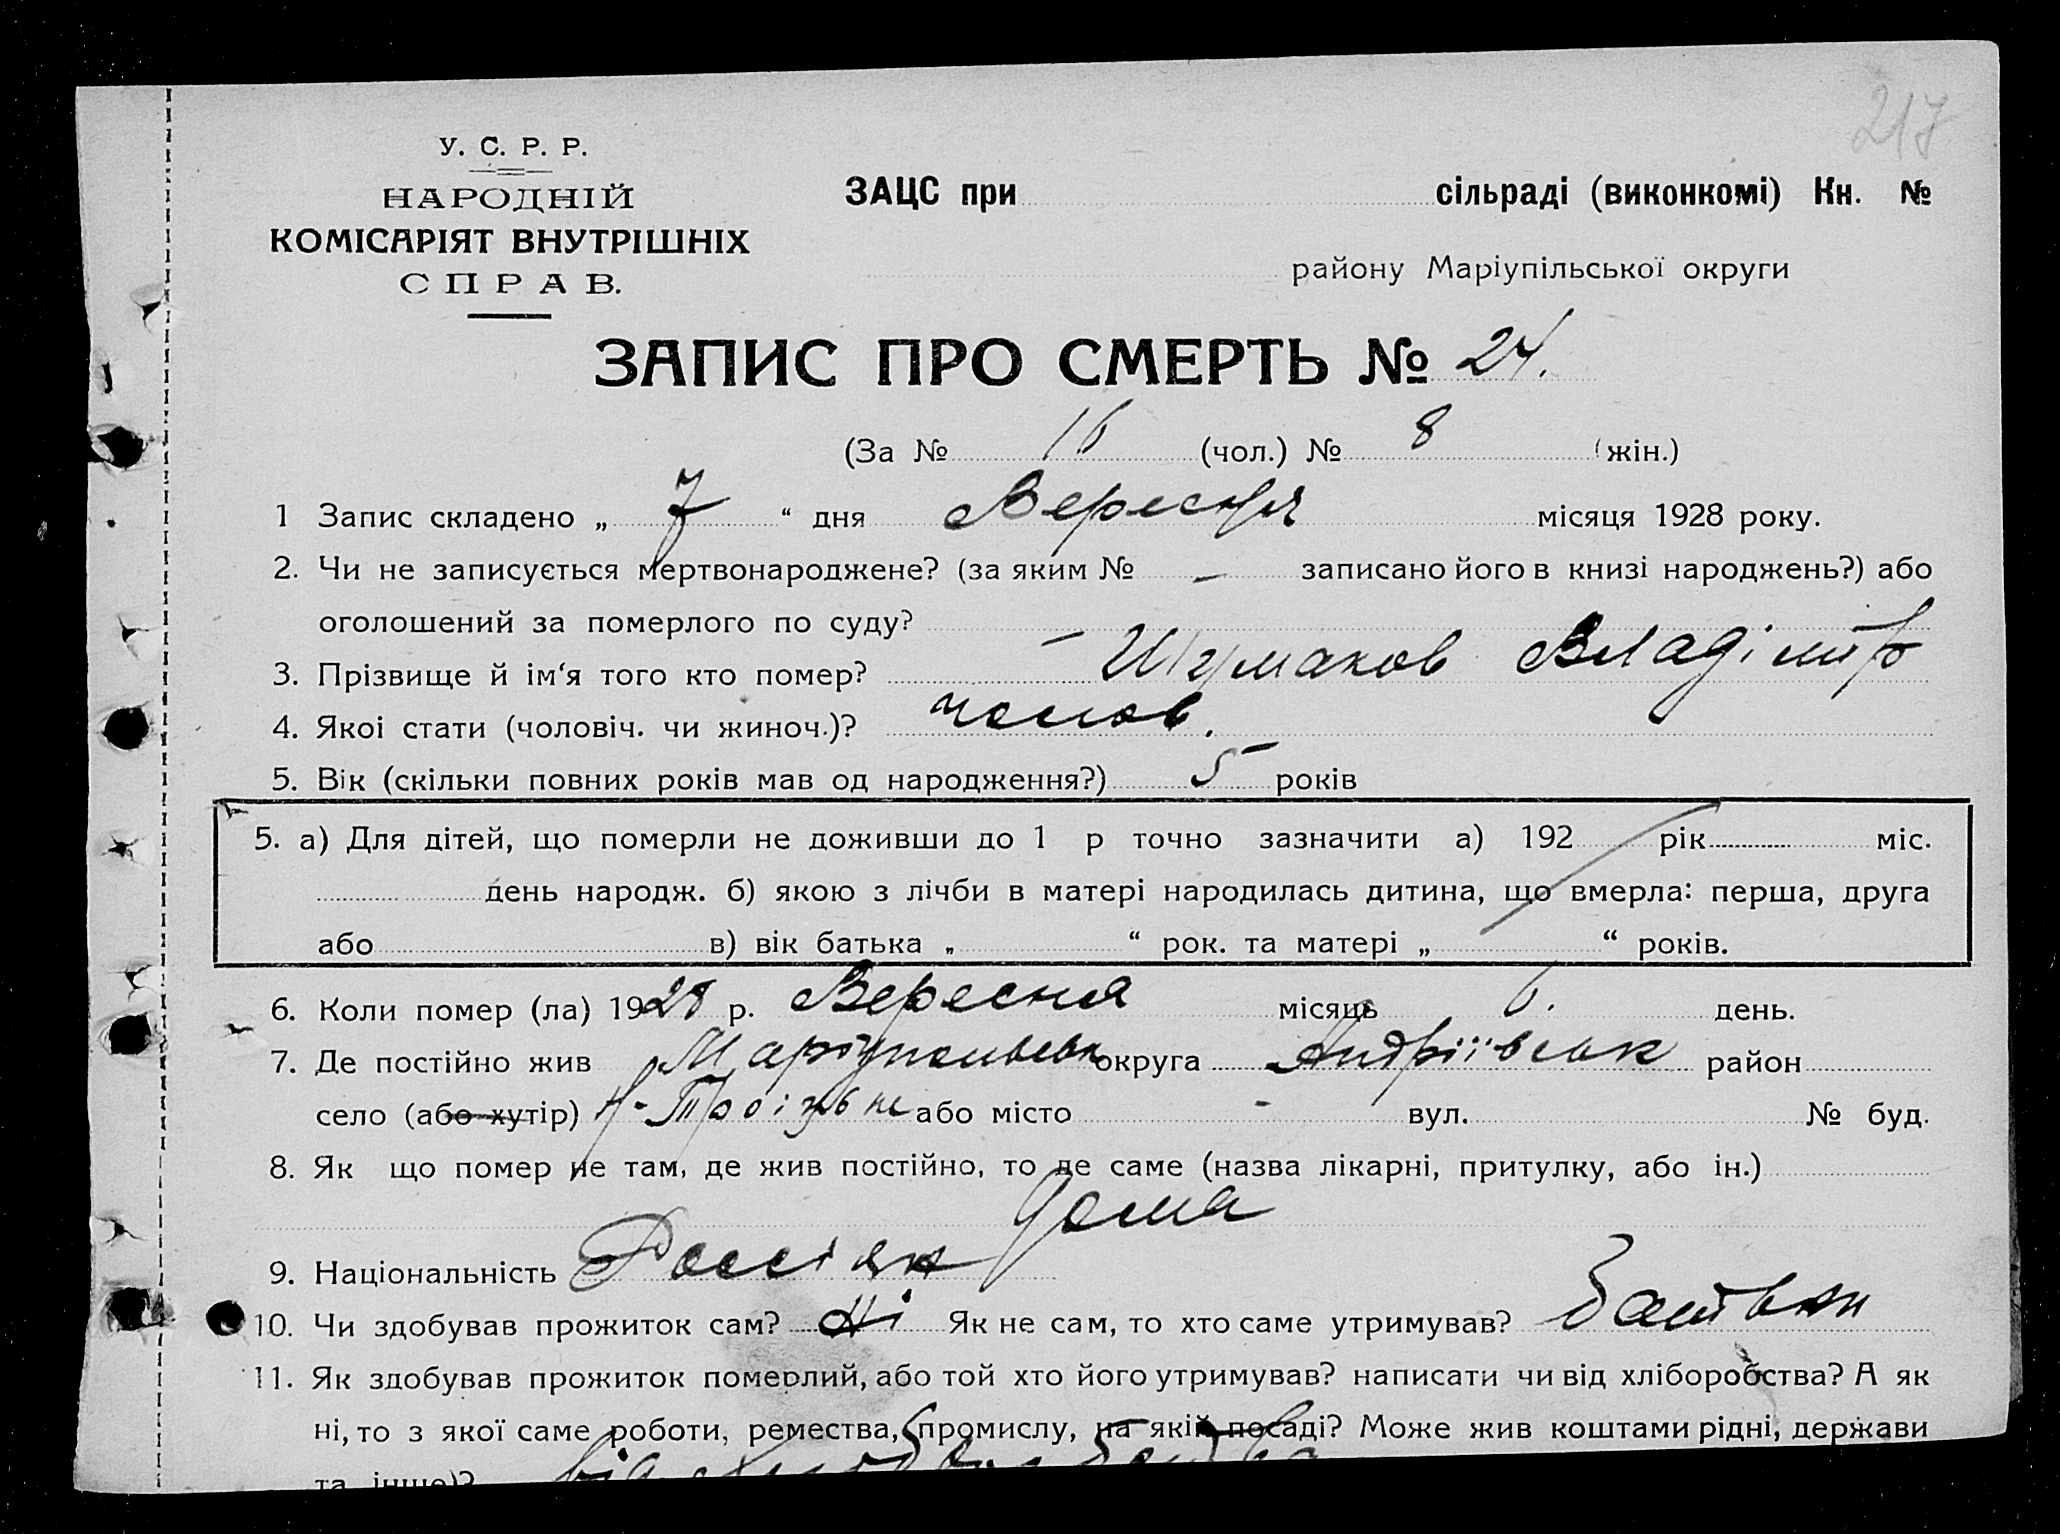 217
У. С. Р. Р.
НАРОДНІЙ
КОМІСАРІЯТ ВНУТРІШНІХ
СПРАВ.
ЗАЦС при сільраді (виконкомі) Кн. №
району Маріупільської округи
ЗАПИС ПРО СМЕРТЬ № 24.
(За № 16 (чол.) № 8 (жін.)
1 Запис складено „ 7 “ дня Вересня місяця 1928 року.
2. Чи не записується мертвонароджене? (за яким № – записано його в книзі народжень?) або
оголошений за померлого по суду? –
3. Прізвище й ім‘я того кто помер? Шумаков Владімір
4. Якоі стати (чоловіч. чи жиноч.)? чолов.
5. Вік (скільки повних років мав од народження?) 5 років
5. а) Для дітей, що померли не доживши до 1 р точно зазначити а) 192 рік міс.
день народж. б) якою з лічби в матері народилась дитина, що вмерла: перша, друга
або в) вік батька „ “ рок. та матері „ “ років.
6. Коли помер (ла) 1928 р. Вересня місяць 6. день.
7. Де постійно жив Маріупольськ округа Андріївськ район
село (або хутір) або місто - вул. № буд.
8. Як що помер не там, де жив постійно, то де саме (назва лікарні, притулку, або ін.)
дома
9. Національність Россіян
10. Чи здобував прожиток сам? Ні Як не сам, то хто саме утримував? Батьки
11. Як здобував прожиток померлий, або той хто його утримував? написати чи від хліборобства? А як
ні, то з якої саме роботи, ремества, промислу, на якій посаді? Може жив коштами рідні, держави
та інше)? від хлiборобства